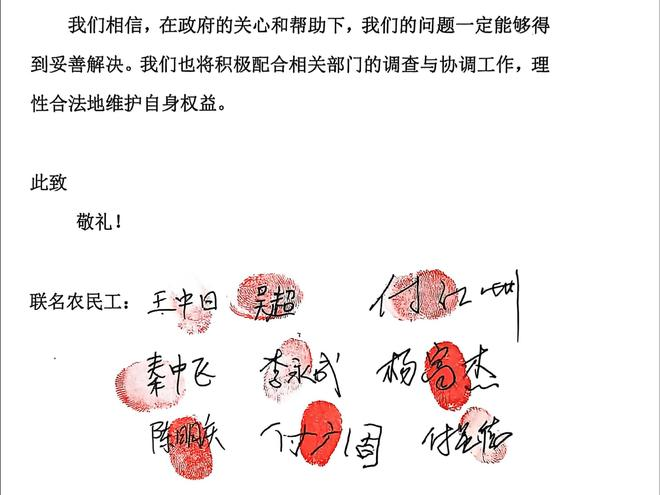 我们相信，在政府的关心和帮助下，我们的问题一定能够得
到妥善解决。我们也将积极配合相关部门的调查与协调工作，理
性合法地维护自身权益。
此致
敬礼！
联名农民工：王中日 吴超 付红州
秦中飞 李永成 杨富杰
陈明庆 付广国